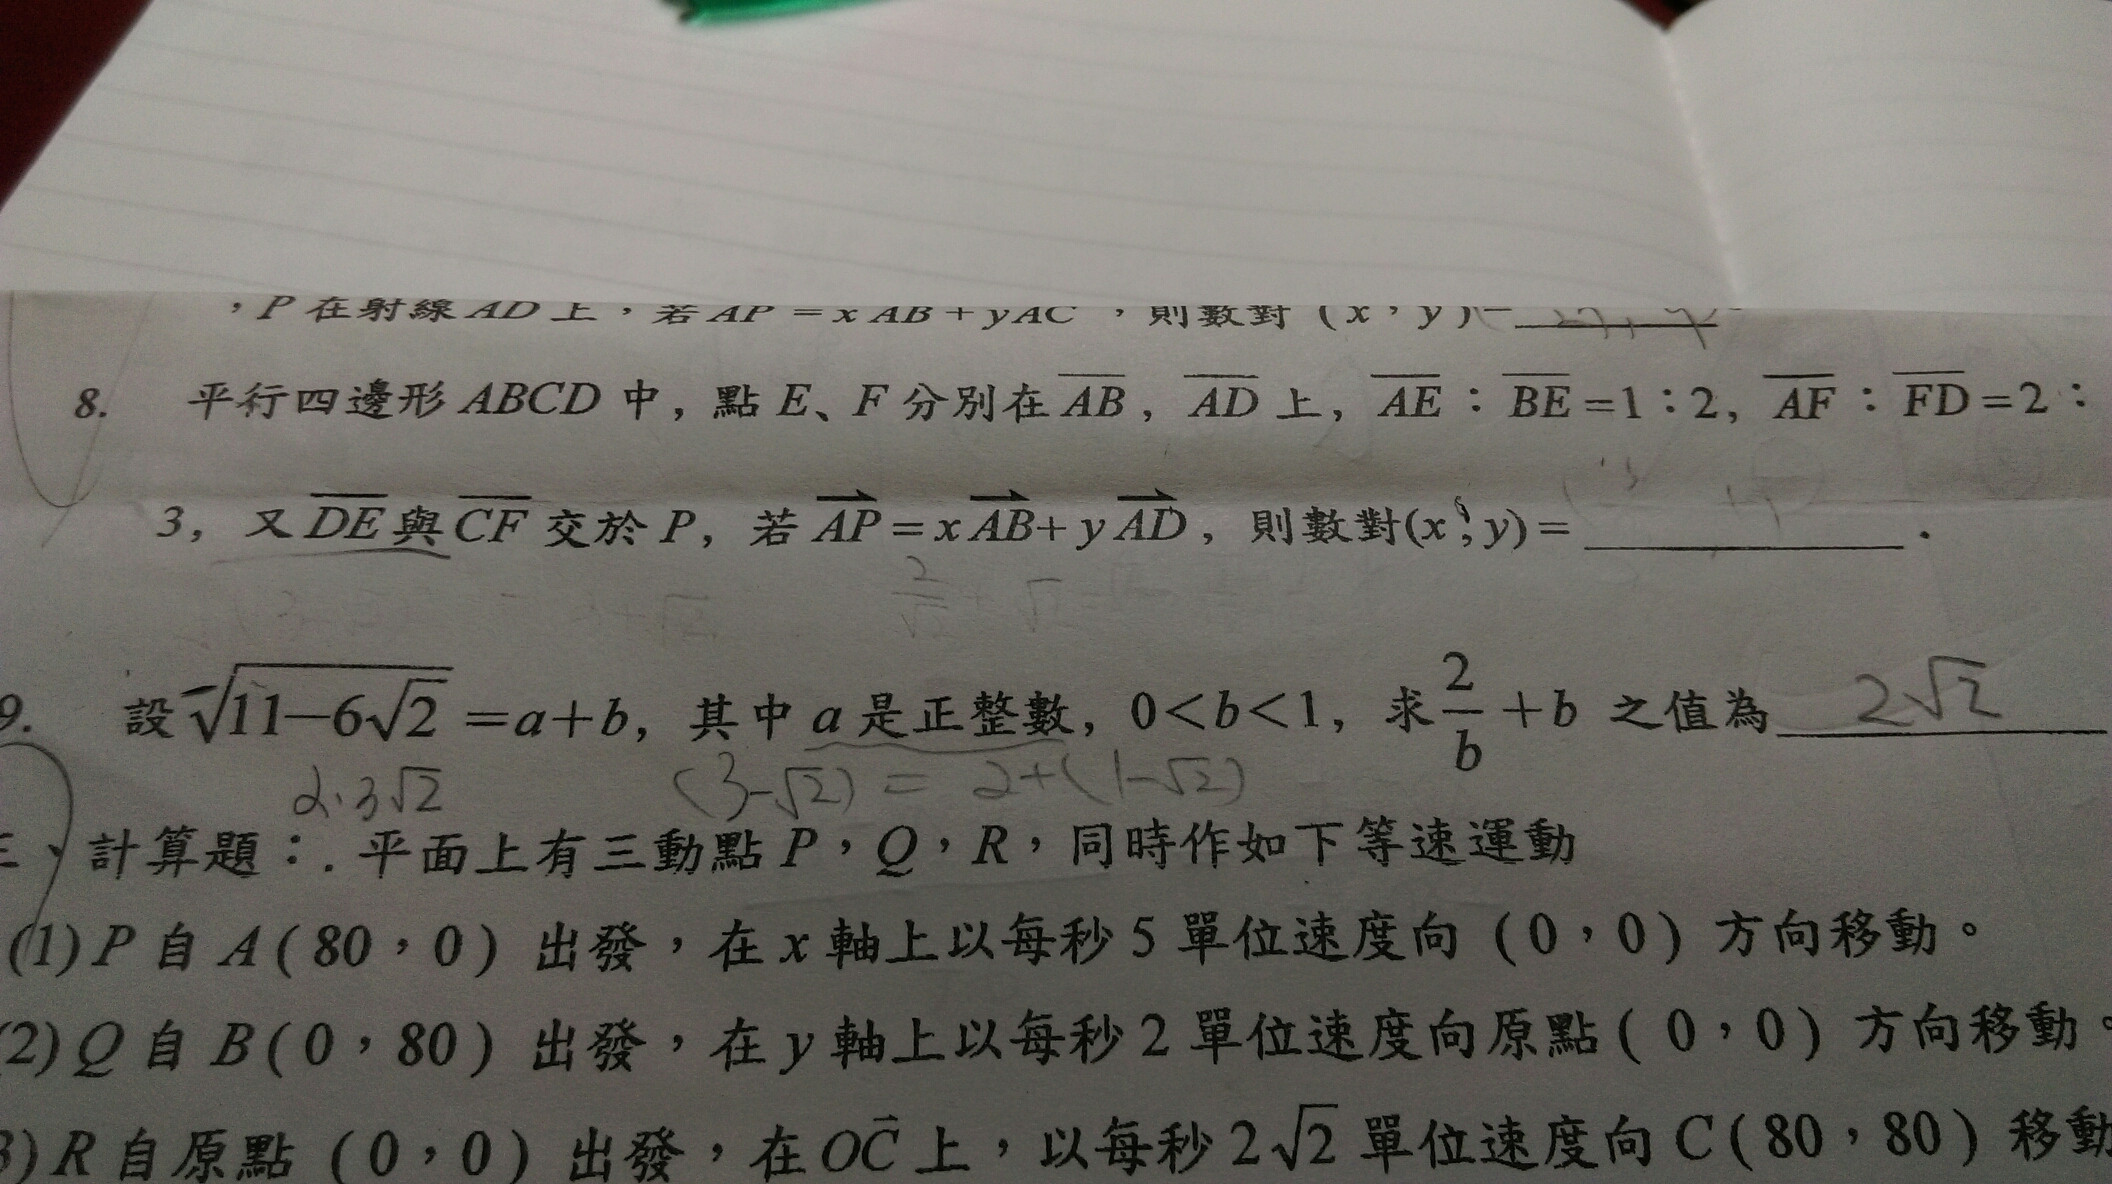 ，P 在射線 AD 上，若 AP = x AB + y AC ，則數對 ( x，y ) =
8. 平行四邊形 ABCD 中, 點 E、F 分別在 AB, AD 上, AE：BE=1：2, AF：FD=2：
3, 又 DE 與 CF 交於 P, 若 AP = x AB + y AD, 則數對(x, y) = ________.
9. 設 √(11−6√2) = a+b, 其中 a 是正整數, 0<b<1, 求 2/b + b 之值為 2√2
2·3√2 (3−√2) = 2+(1−√2)
三、計算題：. 平面上有三動點 P，Q，R，同時作如下等速運動
(1) P 自 A ( 80，0 ) 出發，在 x 軸上以每秒 5 單位速度向 ( 0，0 ) 方向移動。
(2) Q 自 B ( 0，80 ) 出發，在 y 軸上以每秒 2 單位速度向原點 ( 0，0 ) 方向移動。
3) R 自原點 ( 0，0 ) 出發，在 OC 上，以每秒 2√2 單位速度向 C ( 80，80 ) 移動